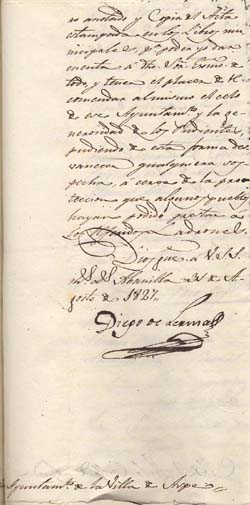 ro anotado y Copia del Acta
estampada en los Libros mu-
nicipales, p.ª poder yo dar
cuenta a dho Sor Exmo de
todo, y tener el placer de re-
comendar al mismo el celo
de ese Ayuntam.to y la ge-
nerosidad de los Pudientes,
pudiendo de esta forma des-
vanecer qualquiera sos-
pecha, a cerca de la pro-
teccion que algunos pueblos
hayan podido prestar a
los Ladrones.
Dios gue. a V.SS.
m.s a.s de A-
gosto de 1827.
Diego de Lerma
Ayuntam.to de la Villa de Aspe